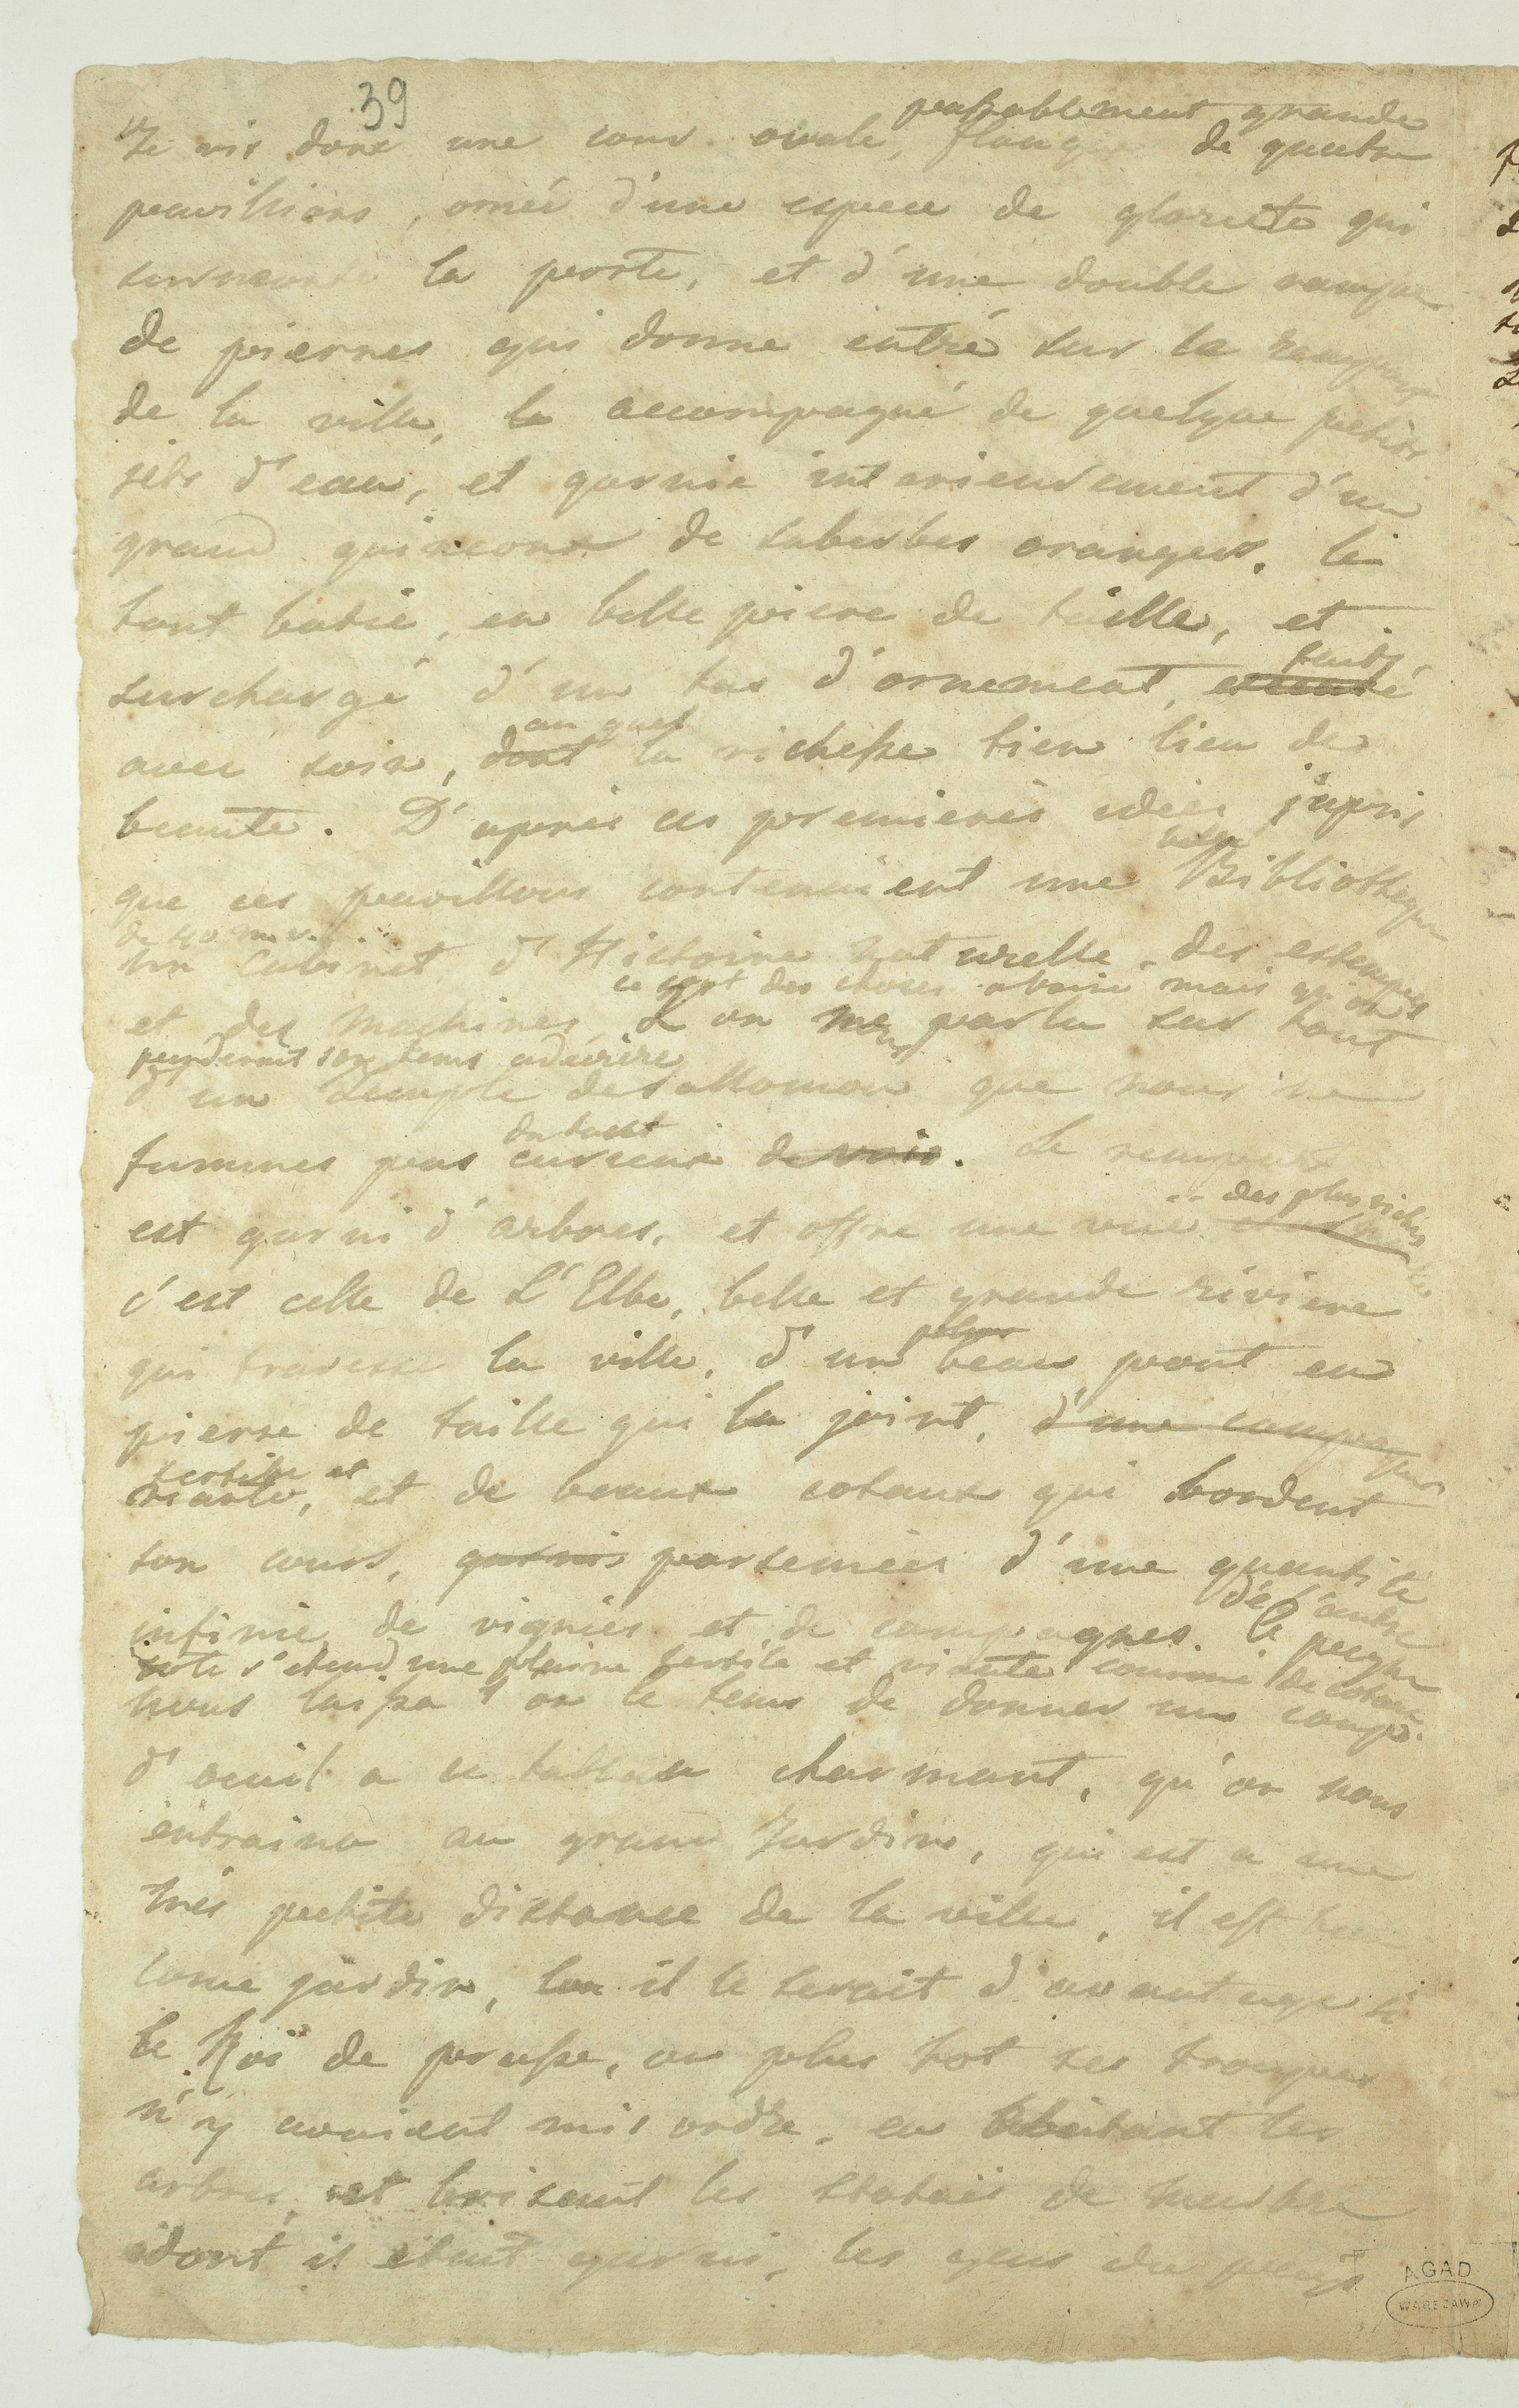 39
probablement grande
Je vis donc une cour ovale, flanque de quatre
pavillions, ornée d'une espece de gloriete qui
surmonte la porte, et d'une double rampe
de pierres qui donne entré sur le rempart
de la ville, le accompagné de quelque petits
jets d'eau, et garnie interieurement d'un
grand quinconx de suberbes orangers, le
tout batie, en belle piere de taille, et
surchargé d'un tas d'ornement,
faits
avec soin, dont la richesse tien lieu de
au quel
beaute. D'aprés ces premieres idées j'apris
que ces pavillons contenaient une Bibliotheque
de 40 m. v.
un Cabinet d'Histoire naturelle, des estampes
ce sont des choses a voire mais qu'on
et des machines, & on me parla sur tout
perderait son tems a decrire
d'un temple de Sallomon que nous ne
fummes pas curieux de voir. Le rempart
du tout
est garni d'arbres, et offre une vue
des plus riches
c'est celle de L'Elbe, belle et grande riviere
qui traverse la ville, d'un beau pont en
plus
pierre de taille qui la joint, d'une campagne
fertile et
riante, et de beaux cotaux qui bordent
son cours, garnis parsemées d'une quantité
infinie de vignies et de campagnes. A peigne
de l'autre
coté s'etend une plaine fertile et riante couroné de cotaux
nous laissa t on le tems de donner un coup
d'oeuil a ce tableau charmant, qu'on nous
entraina au grand Jardin, qui est a une
trés petite distance de la ville, il est beau
come jardin, il le serait d'avantage si
le Roi de prusse, ou plus tot ses troupes
n'y avaient mis ordre, en abatant les
arbres, et brisant les statues de meubre
dont il etait garni, les gens du pays
AGAD
WARSZAWA